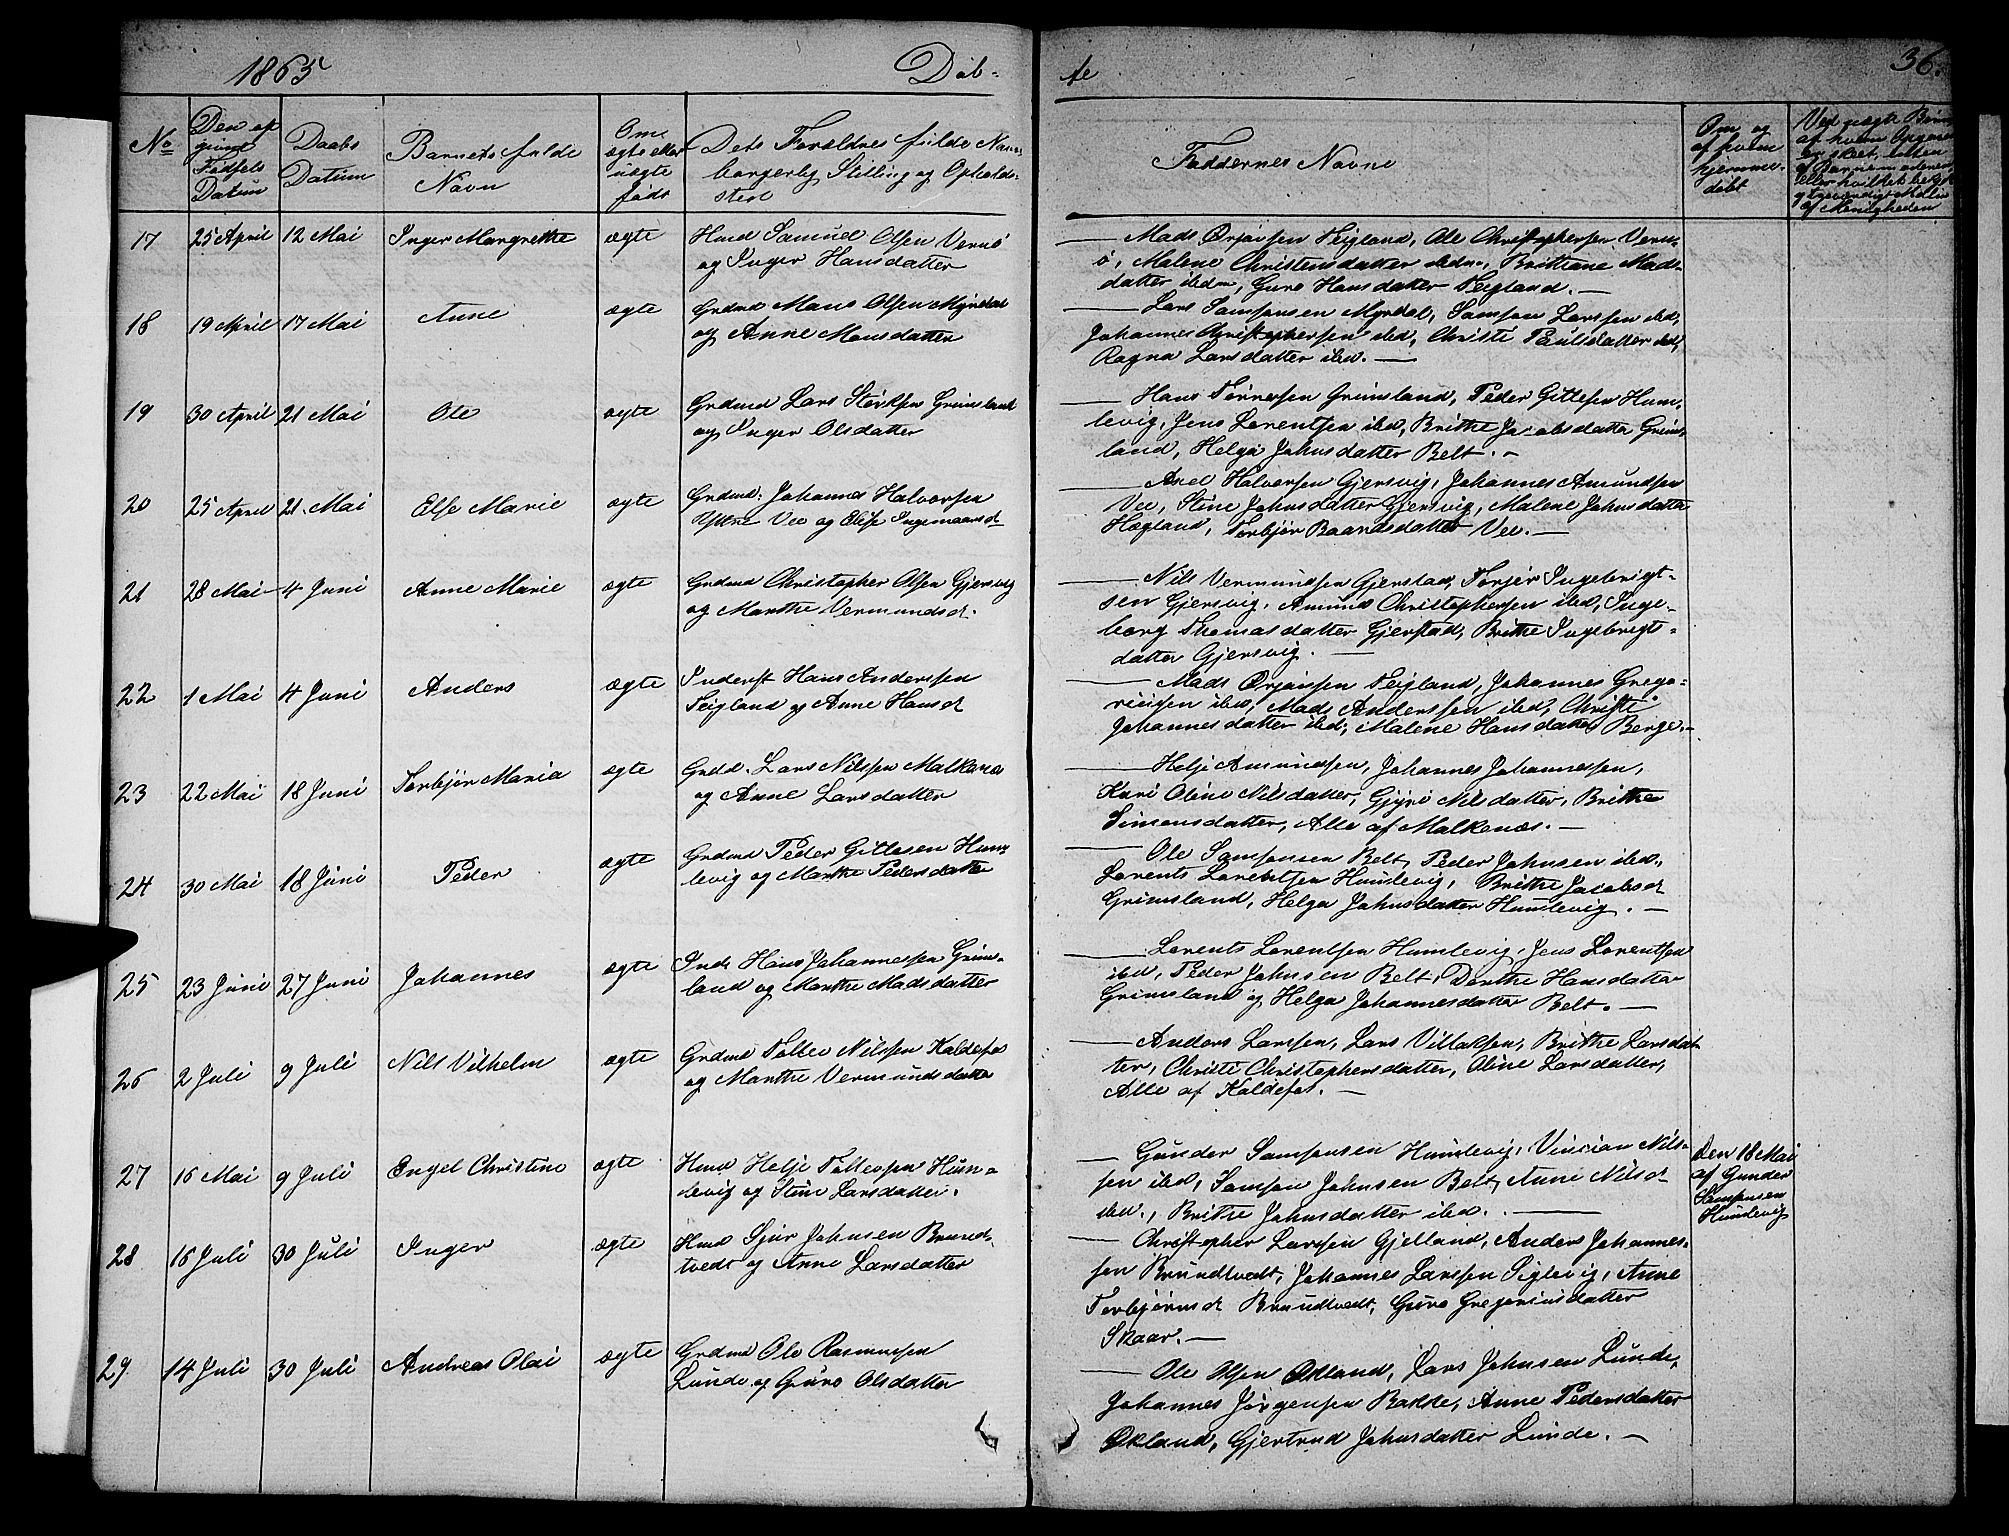 1865 Døb-
te 36.
No
Den op
givne
Fødsels
Datum
Daabs
Datum
Barnets fulde
Navn
Om
ægte eller
uægte
født
Dets Forældres fulde Navn
borgerlig Stilling og Opholds-
sted
Faddernes Navne
Om og
af hvem
hjemme-
døbt
Ved uægte Børn
af hvem Opgaven
er skeet,
af Menigheden
17 25 April 12 Mai Inger Margrethe ægte Hmd Samuel Olsen Vernø
og Inger Hansdatter
Mads Ørjansen Teigland, Ole Christophersen Vern-
ø, Malene Christensdatter ibdm, Brithane Mads-
datter ibdm, Guro Hansdatter Teigland.
18 19 April 17 Mai Anne ægte Grdmd Mons Olsen Myrdal
og Anne Monsdatter
Lars Samsonsen Myrdal, Samson Larssen ibd,
Johannes Christophersen ibd, Christi Paulsdatter ibd,
Ragna Larsdatter ibd.
19 30 April 21 Mai Ole ægte Grdmd Lars Størksen Grimsland
og Inger Olsdatter
Hans Tørresen Grimsland, Peder Gittlesen Hum-
levig, Jens Lorentsen ibd, Brithe Jacobsdatter Grims-
land, Helga Johnsdatter Belt.
20 25 April 21 Mai Else Marie ægte Grdmd: Johannes Halvorsen
Yttre Vee og Elise Ingemaansd
Axel Halvorsen Gjersvig, Johannes Amundsen
Vee, Stine Johnsdatter Gjersvig, Malene Johnsdatter
Hægland, Torbjør Baardsdatter Vee.
21 28 Mai 4 Juni Anne Marie ægte Grdmd Christopher Olsen Gjersvig
og Marthe Vermundsd.
Nils Vermundsen Gjerstad, Torjer Ingebrigt-
sen Gjersvig, Amund Christophersen ibd, Inge-
borg Thomasdatter Gjerstad, Brithe Ingebrigts-
datter Gjersvig.
22 1 Mai 4 Juni Anders ægte Inderst Hans Anderssen
Teigland og Anne Hansd
Mads Ørjansen Teigland, Johannes Grego-
riussen ibd, Mads Anderssen ibd, Christi
Johannesdatter ibd, Malene Hansdatter Berge.
23 22 Mai 18 Juni Torbjør Maria ægte Grdd. Lars Nilssen Malkenæs
og Anne Larsdatter
Helje Amundsen, Johannes Johannessen,
Kari Oline Nilsdatter, Gjyri Nilsdatter, Brithe
Simonsdatter, Alle af Malkenæs.
24 30 Mai 18 Juni Peder ægte Grdmd Peder Gitlesen Hum-
levig og Marthe Pedersdatter
Ole Samsonsen Belt, Peder Johnsen ibd.,
Lorents Lorentsen Humlevig, Brithe Jacobsd
Grimsland, Helga Johnsdatter Humlevig.
25 23 Juni 27 Juni Johannes ægte Inds Hans Johannessen Grims-
land og Marthe Madsdatter
Lorents Lorentsen Humlevig, Jens Lorentsen
ibd, Peder Johnsen Belt, Dorthe Hansdatter
Grimsland og Helga Johannesdatter Belt.
26 2 Juli 9 Juli Nils Vilhelm ægte Grdmd Tollev Nilssen Kaldefos
og Marthe Vermundsdatter
Anders Larssen, Lars Villaksen, Brithe Larsdat-
ter, Christi Christophersdatter, Oline Larsdatter,
Alle af Kaldefos.
27 16 Mai 9 Juli Engel Christine ægte Hmd Helje Tollevsen Hum-
levig og Stine Larsdatter.
Gunder Samsonsen Humlevig, Vincian Nils-
sen ibd, Samson Johnsen Belt, Anne Nilsd
ibd., Brithe Johnsdatter ibd.
Den 18 Mai
af Gunder
Samsonsen
Humlevig
28 16 Juli 30 Juli Inger ægte Hmd Sjur Johnsen Brund-
tvedt og Anne Larsdatter
Christopher Larssen Gjelland, Anders Johannes-
sen Brundtvedt, Johannes Larssen Siglevig, Anne
Torbjørnsd Brundtvedt, Guro Gregoriusdatter
Skaar.
29 14 Juli 30 Juli Andreas Olai ægte Grdmd Ole Rasmussen
Lunde og Guro Olsdatter
Ole Olsen Økland, Lars Johnsen Lunde,
Johannes Jørgensen Bakke, Anne Pedersdatter
Økland, Gjertrud Johnsdatter Lunde.